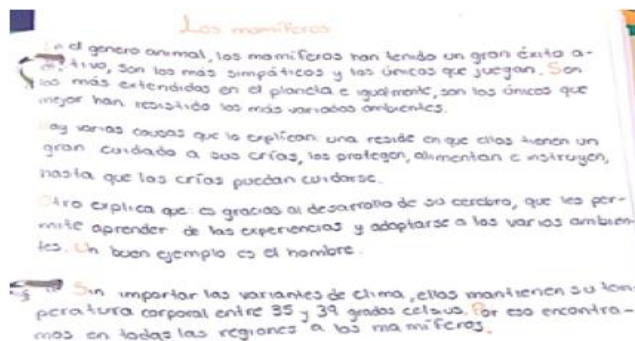 Los mamíferos
En el genero animal, los mamíferos han tenido un gran éxito a-
tivo, son los más simpáticos y los únicos que juegan. Son
los más extendidos en el planeta e igualmente, son los únicos que
mejor han resistido los más variados ambientes.
Hay varias causas que lo explican: una reside en que ellos tienen un
gran cuidado a sus crías, los protegen, alimentan e instruyen,
hasta que las crías puedan cuidarse.
Otro explica que: es gracias al desarrollo de su cerebro, que les per-
mite aprender de las experiencias y adaptarse a los varios ambien-
tes. Un buen ejemplo es el hombre.
Sin importar las variantes de clima, ellos mantienen su tem-
peratura corporal entre 35 y 39 grados celsius. Por eso encontra-
mos en todas las regiones a los mamíferos.